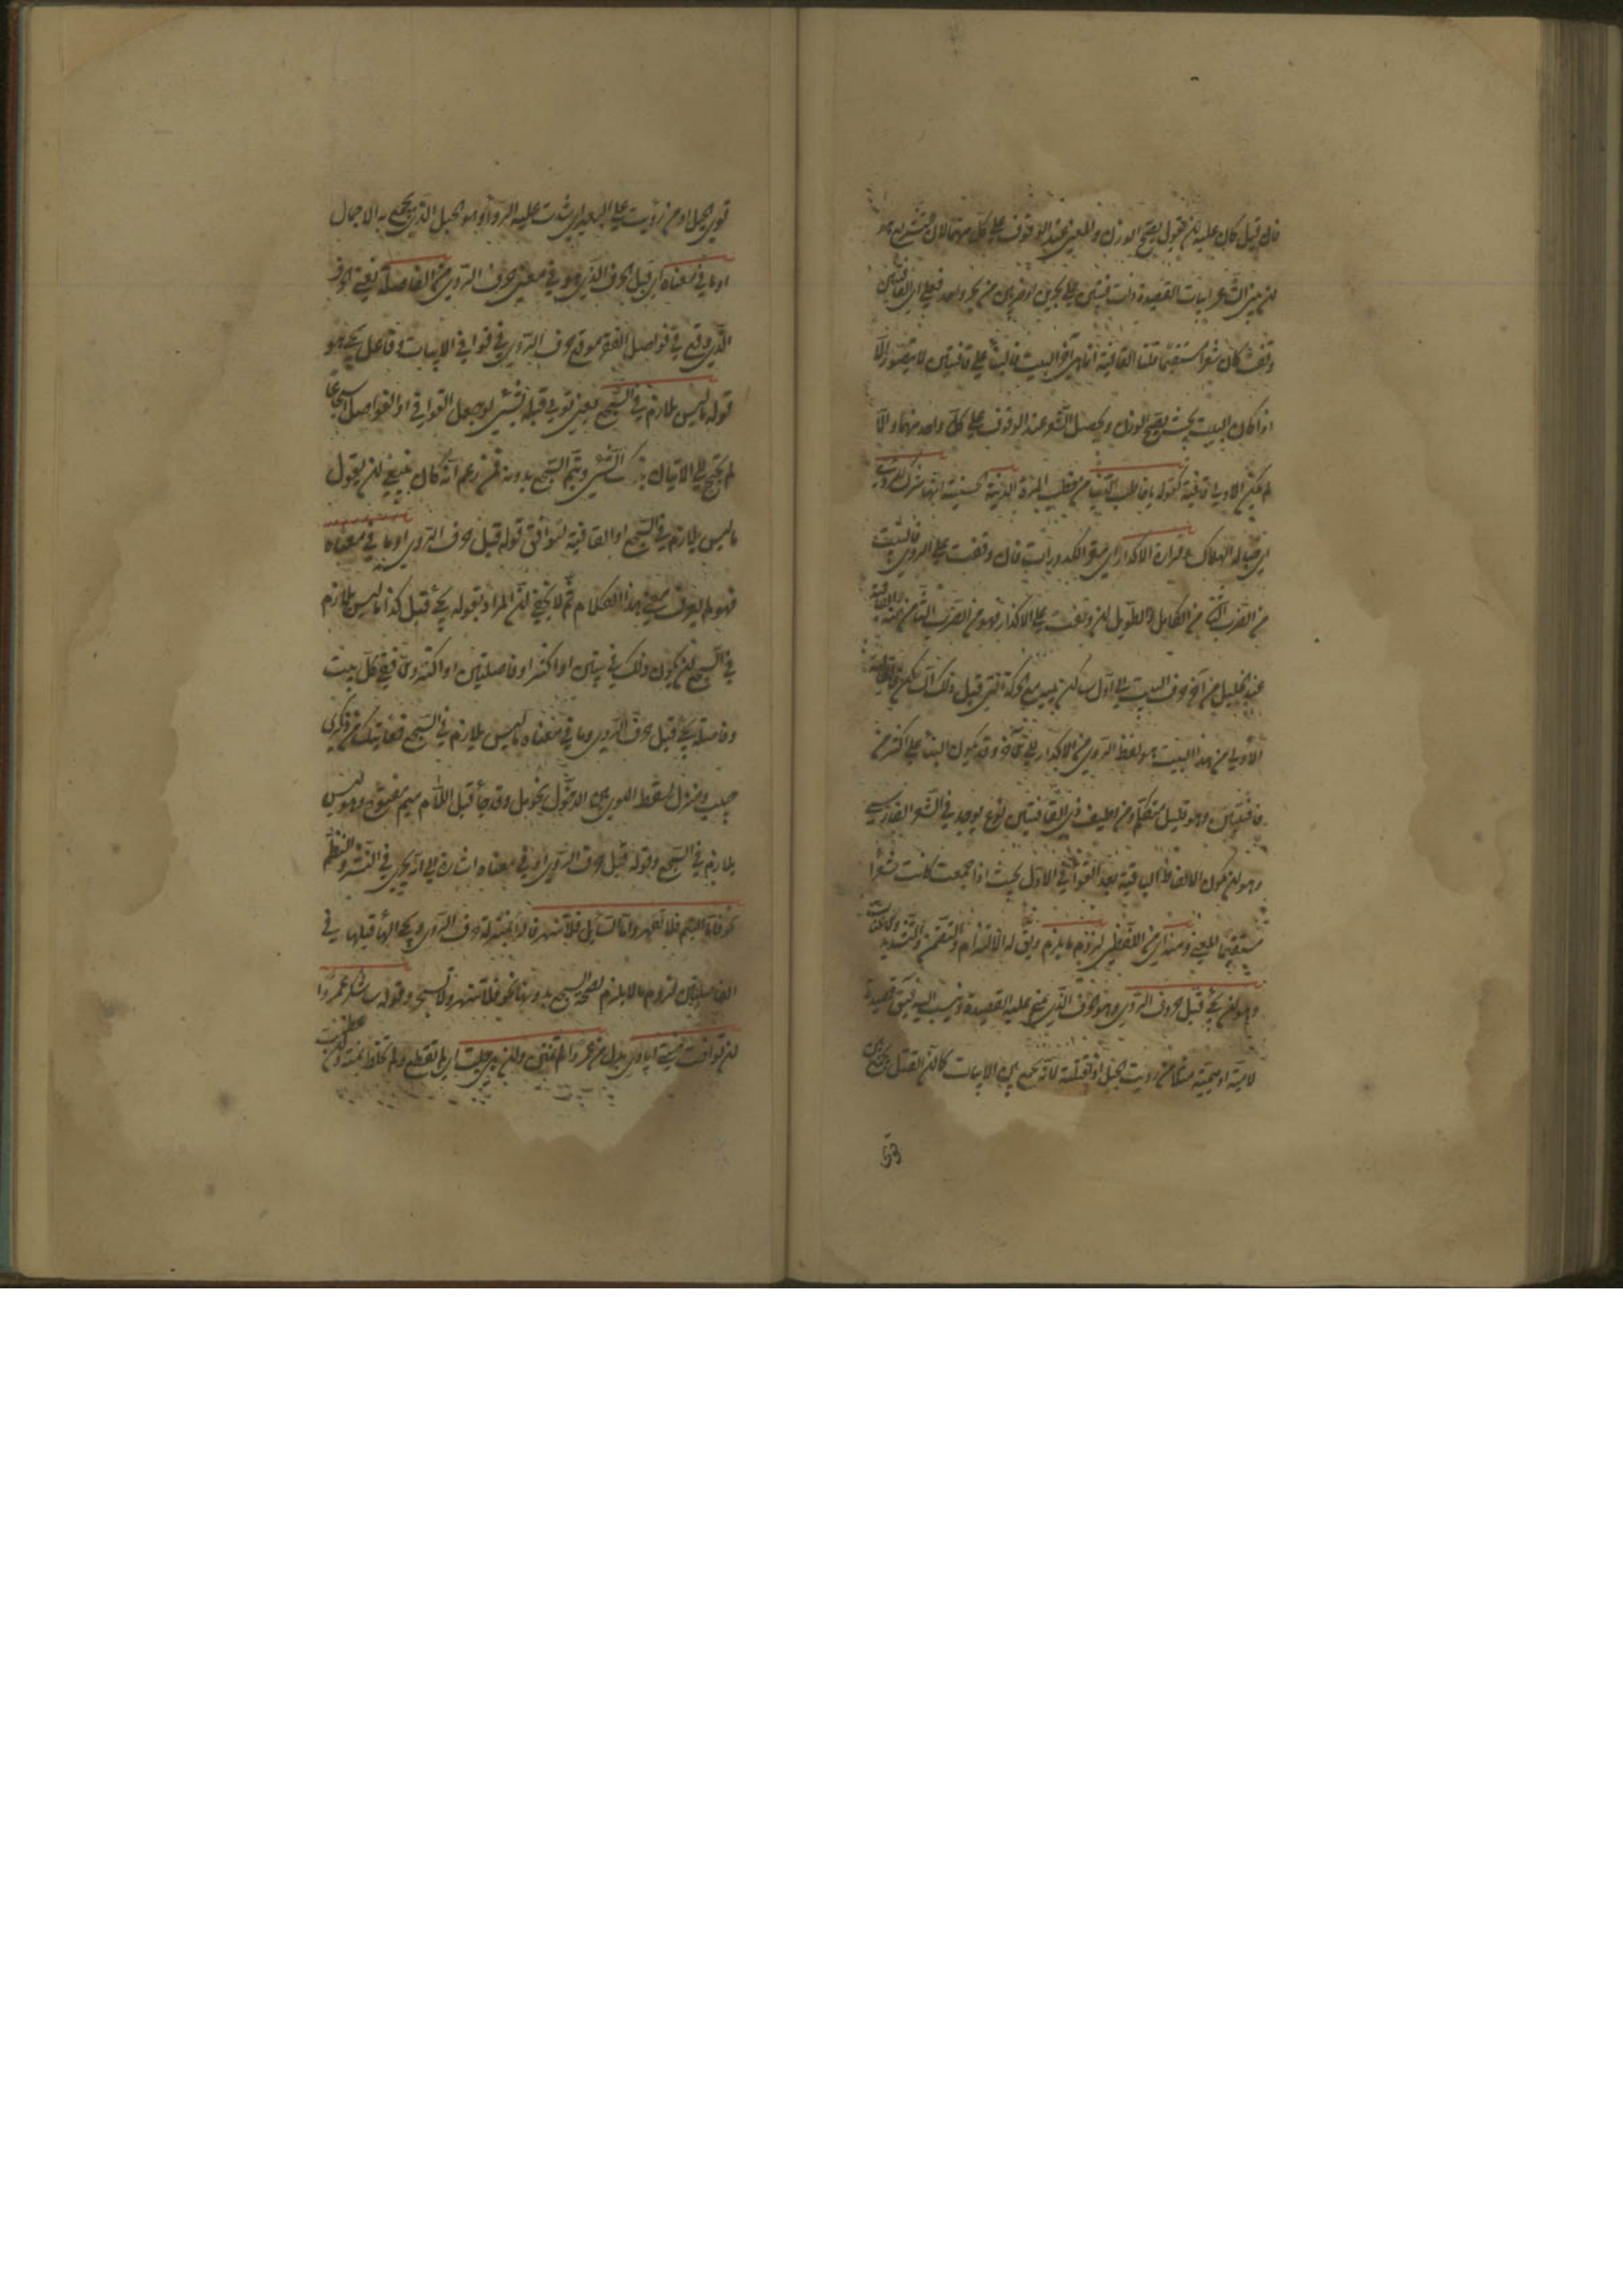 فان قيل كان عليه ان يقول يصح الوزن والمعنى عند الوقوف على كل منهما لان
ان يبنى الشاعر ابيات القصيدة ذات قافيتين على بحرين او ضربين من بحر واحد فعلى اى القافيتين
وقفت كان شعرا مستقيما قلنا القافية انما هى آخر البيت فالبناء على قافيتين لا يتصور الا
اذا كان البيت بحيث يصح الوزن ويحصل الشعر عند الوقوف على كل واحد منهما والا
لم يكن الاولى قافية كقوله يا خاطب الدنيا من خطب المرأة الدنية الخسيسة انها شرك الردى
اى حبالة الهلاك وقرارة الاكدار اى مقر الكدورات فان وقفت على الردى فالبيت
من الضرب الثامن من الكامل وان وقفت على الاكدار فهو من الضرب الثانى منه والقافية
عند الخليل من آخر حرف فى البيت الى اول ساكن يليه مع الحركة التى قبل ذلك الساكن فالقافية
الاولى من هذا البيت هو لفظ الردى من الاكدار الى آخره وقد يكون البناء على اكثر من
قافيتين وهو قليل متكلف ومن لطيف ذى القافيتين نوع يوجد فى الشعر الفارسى
وهو ان يكون الالفاظ الباقية بعد القوافى الاول بحيث اذا جمعت كانت شعرا
مستقيم المعنى ومنه اى من اللفظى لزوم ما لا يلزم ويقال له الالتزام والتضمين والتشديد والاعنات
وهو ان يجئ قبل حرف الروى وهو الحرف الذى يبنى عليه القصيدة وينسب اليه فيقال قصيدة
لامية او ميمية مثلا من رويت الحبل اذا فتلته لانه يجمع بين الابيات كما ان الفتل يجمع بين
قوى الحبل او من رويت على البعير اى شددت عليه الرواء وهو الحبل الذى يجمع به الاحمال
او ما فى معناه اى قبل الحرف الذى هو فى معنى حرف الروى من الفاصلة يعنى الحرف
الذى وقع فى فواصل الفقر موقع حرف الروى فى قوافى الابيات وفاعل يجئ هو
قوله ما ليس بلازم فى السجع يعنى يؤتى قبله بشئ لو جعل القوافى او الفواصل اسجاعا
لم يحتج الى الاتيان بذلك الشئ ويتم السجع بدونه فمن زعم انه كان ينبغى ان يقول
ما ليس بلازم فى السجع او القافية ليوافق قوله قبل حرف الروى او ما فى معناه
فهو لم يعرف معنى هذا الكلام ثم لا يخفى ان المراد بقوله يجئ قبل كذا ما ليس بلازم
فى السجع ان يكون ذلك فى بيتين او اكثر او فاصلتين او اكثر والا ففى كل بيت
وفاصلة يجئ قبل حرف الروى وما فى معناه ما ليس بلازم فى السجع قفا نبك من ذكرى
حبيب ومنزل بسقط اللوى بين الدخول فحومل وقد جاء قبل اللام ميم مفتوح وهو ليس
بلازم فى السجع وقوله قبل حرف الروى او ما فى معناه اشارة الى انه يجرى فى النثر والنظم
نحو فاما اليتيم فلا تقهر واما السائل فلا تنهر فالراء بمنزلة حرف الروى ومجئ الهاء قبلها فى
الفاصلتين لزوم ما لا يلزم لصحة السجع بدونها نحو فلا تنهر ولا تسخر وقوله ساشكر عمروا
ان تراخت منيتى ايادى بدل من عمرو لم تمنن وان هى جلت اى لم تقطع ولم تخلط بمنة وان عظمت